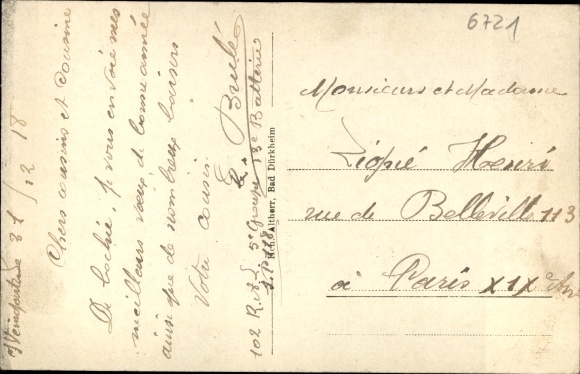 6721
31/12 18
Chers cousins et cousine
De Boche, je vous envoie mes
meilleurs vœux de bonne année
ainsi que de nombreux baisers
Votre cousin.
E. Brulé
102 R.A.L. 5e Groupe 13e Batterie
Altherr, Bad Dürkheim
Monsieurs et Madame
Henri
rue de Belleville 113
à Paris XIXe Arr